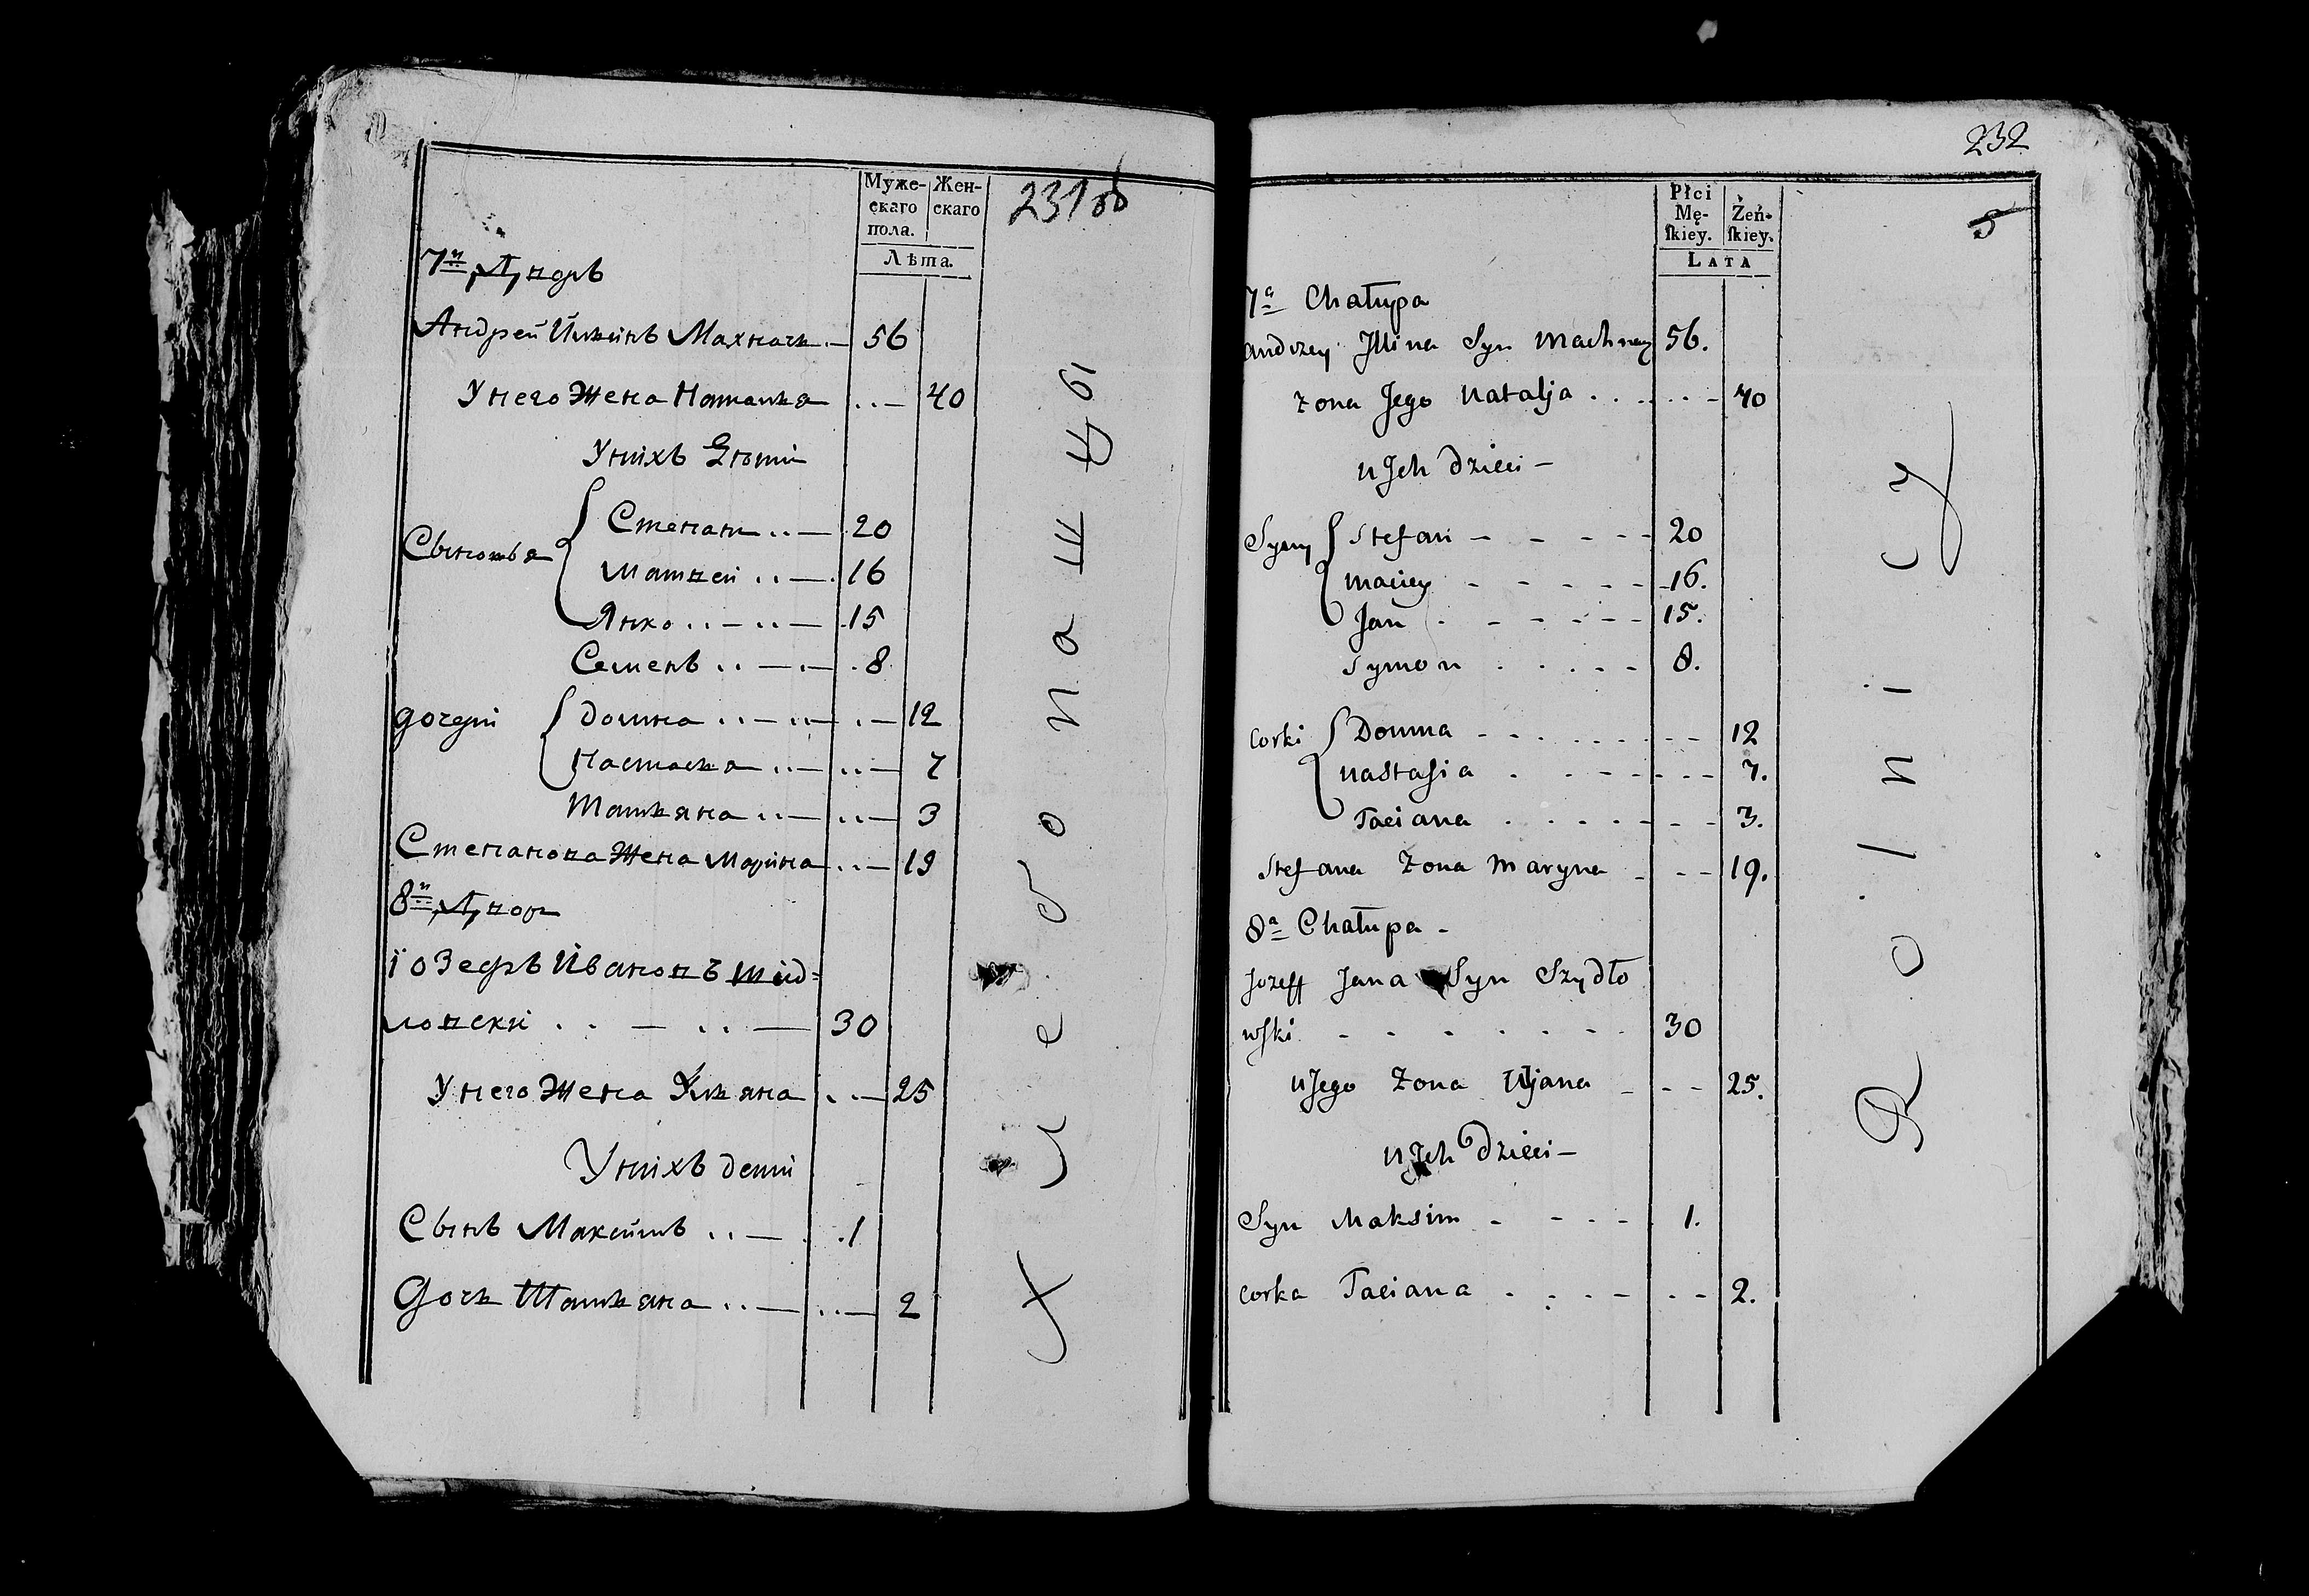 231об
Муже-
скаго
пола.
Жен-
скаго
Лѣта.
7й Дворъ
Андрей Ильинъ Махначь 56
У него Жена Наталья 40
У нихъ Дѣти
Сыновья
Степанъ 20
Матвей 16
Янко 15
Семенъ 8
дочери
Домна 12
Настасья 7
Татьяна 3
Степанова Жена Марина 19
8й Двор
Іозефъ Ивановъ Шид=
ловски 30
У него Жена Ульяна 25
У нихъ дети
Сынъ Максимъ 1
Дочь Татьяна 2
Хлебопашцы
232
5
Płci
Mę-
skiey.
Żeń-
skiey.
LATA
7a Chałupa
Andrzey Illina Syn Machnacz 56.
Zona Jego Natalja 40
u Jch Dzieci –
Syny
Stefan 20
Maciey 16.
Jan 15.
Symon 8.
Corki
Domna 12
Nastasia 7.
Taciana 3.
Stefana Zona Maryna 19.
8a Chałupa -
Jozeff Jana Syn Szydło
wski 30
u Jego Zona Uljana 25.
u Jch Dzieci –
Syn Maksim 1.
Corka Taciana 2.
Rolnicy